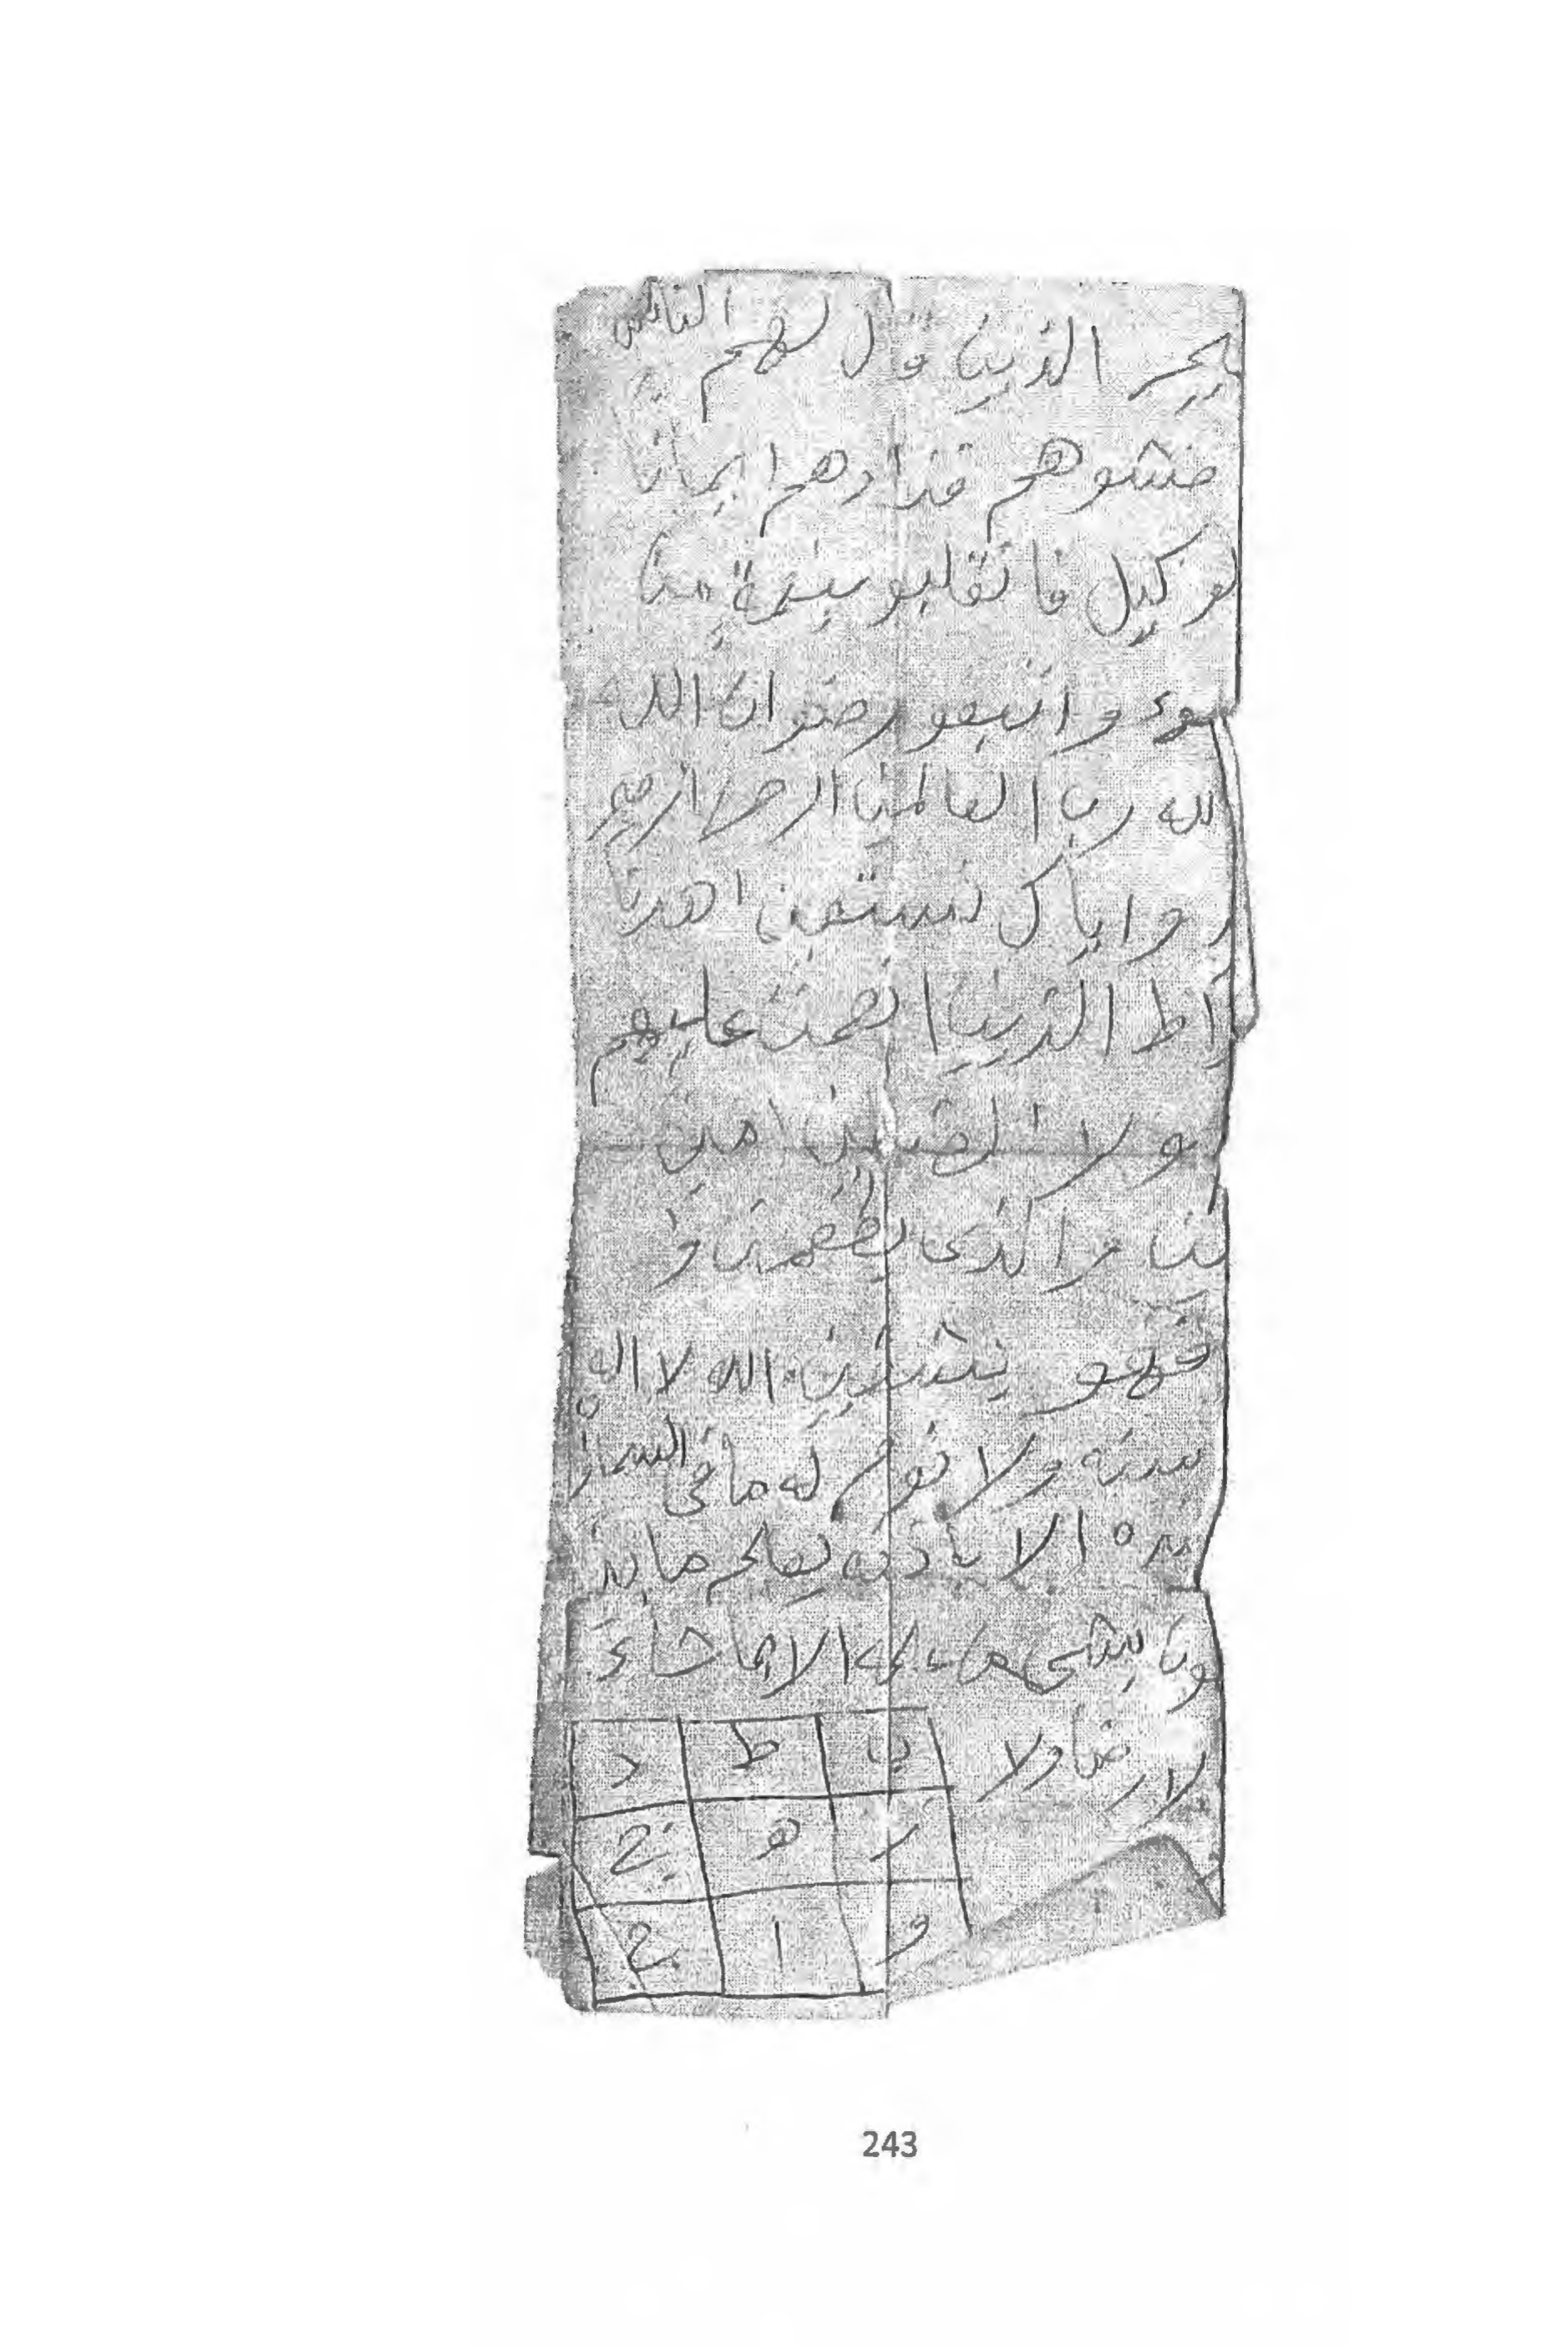 الذين قال لهم الناس
خشوهم فزادهم ايمانا
لوكيل فانقلبو بنعمة من
سوء واتبعو رضوان الله
لله رب العالمين الرحمن الرحيم
د واياك نستعين اهدنا
راط الذين انعمت عليهم
ولا الضلين امين
والذى يطعمنى و
فهو يشفين الله لا اله
سنه ولا نوم له ما فى السماو
نده الا باذنه يعلم ما بين
ون بشى من علمه الا بما شاء
لارض ولا
ب ط د
ز ه ج
و ا ح
243